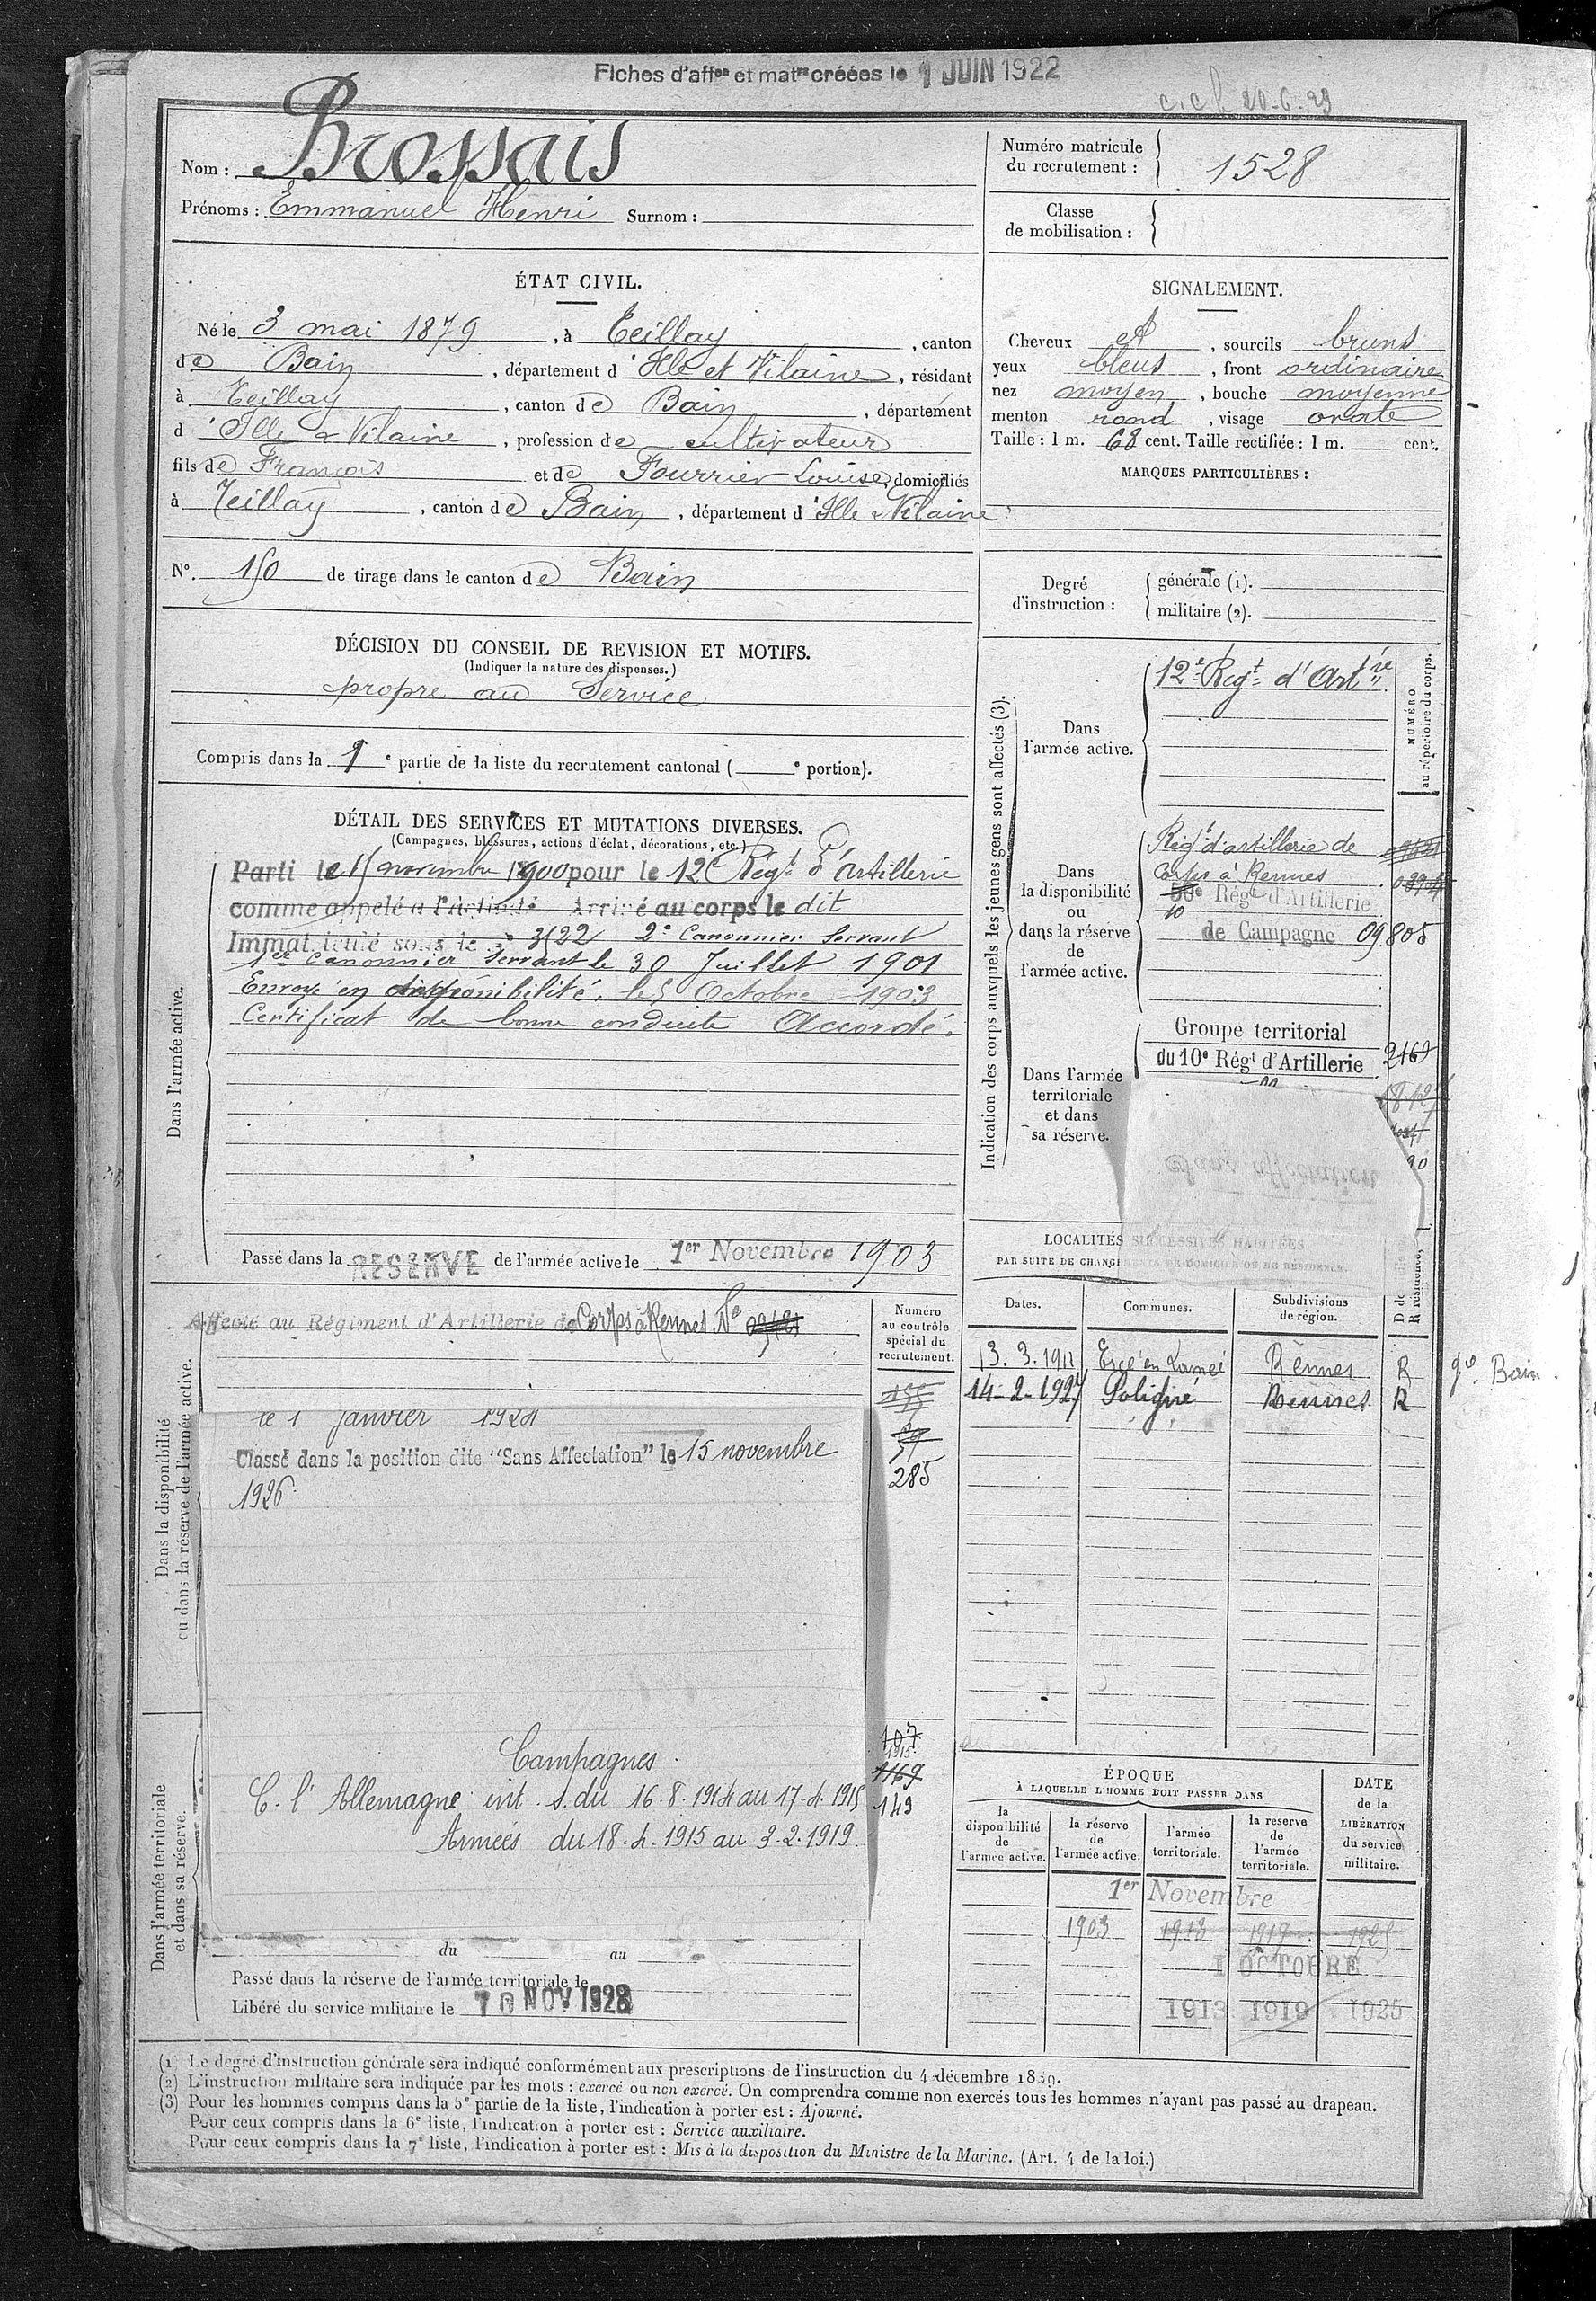 Fiches d'affon et matre créées le 1 JUIN 1922
c.c.l 20-6-29
Nom : Brossais
Prénoms : Emmanuel Henri Surnom :
Numéro matricule du recrutement : 1528
Classe de mobilisation :
ÉTAT CIVIL.
Né le 3 mai 1879, à Teillay, canton
de Bain, département d'Ille et Vilaine, résidant
à Teillay, canton de Bain, département
d'Ille & Vilaine, profession de cultivateur
fils de François et de Fourrier Louise, domiciliés
à Teillay, canton de Bain, département d'Ille & Vilaine
SIGNALEMENT.
Cheveux et, sourcils bruns
yeux bleus, front ordinaire
nez moyen, bouche moyenne
menton rond, visage ovale
Taille : 1 m. 68 cent. Taille rectifiée : 1 m. cent.
MARQUES PARTICULIÈRES :
N°. 150 de tirage dans le canton de Bain
Degré d'instruction :
générale (1).
militaire (2).
DÉCISION DU CONSEIL DE REVISION ET MOTIFS.
(Indiquer la nature des dispenses.)
propre au Service
Compris dans la 1e partie de la liste du recrutement cantonal (e portion).
DÉTAIL DES SERVICES ET MUTATIONS DIVERSES.
(Campagnes, blessures, actions d'éclat, décorations, etc.)
Dans l'armée active.
Parti le 15 novembre 1900 pour le 12e Régt d'Artillerie
comme appelé à l'activité Arrivé au corps le dit
Immatriculé sous le n° 3122 2e Canonnier Servant
1er Canonnier Servant le 30 Juillet 1901
Envoyé en disponibilité, le 5 Octobre 1903
Certificat de bonne conduite Accordé.
Passé dans la RESERVE de l'armée active le 1er Novembre 1903
Indication des corps auxquels les jeunes gens sont affectés (3).
NUMÉRO au répertoire du corps.
Dans l'armée active.
12e Regt d'Artre
Dans la disponibilité ou dans la réserve de l'armée active.
Régt d'artillerie de
Corps à Rennes
50e Régt d'Artillerie
10
de Campagne 09805
Dans l'armée territoriale et dans sa réserve.
Groupe territorial
du 10e Régt d'Artillerie 2169
Sans affectation
LOCALITÉS SUCCESSIVES HABITÉES
PAR SUITE DE CHANGEMENT DE DOMICILE OU DE RÉSIDENCE.
Dates. Communes. Subdivisions de région.
13.3.1911 Ercé en Lamée Rennes R gé Bain.
14-2-1927 Poligné Rennes R
Dans la disponibilité ou dans la réserve de l'armée active.
Affecté au Régiment d'Artillerie de Corps à Rennes No
Numéro au contrôle spécial du recrutement.
285
le 1 janvier 1921
Classé dans la position dite "Sans Affectation" le 15 novembre
1926
Dans l'armée territoriale et dans sa réserve.
Campagnes.
C. l'Allemagne int. s. du 16.8.1914 au 17.4.1915
Armées du 18.4.1915 au 3.2.1919.
107
1915
1169
149
du au
Passé dans la réserve de l'armée territoriale le
Libéré du service militaire le 10 NOV 1928
ÉPOQUE
À LAQUELLE L'HOMME DOIT PASSER DANS
la disponibilité de l'armée active.
la réserve de l'armée active.
l'armée territoriale.
la reserve de l'armée territoriale.
DATE de la LIBÉRATION du service militaire.
1er Novembre
1903 1913 1919 1925
1 OCTOBRE
1913 1919 1925
(1) Le degré d'instruction générale sera indiqué conformément aux prescriptions de l'instruction du 4 décembre 1889.
(2) L'instruction militaire sera indiquée par les mots : exercé ou non exercé. On comprendra comme non exercés tous les hommes n'ayant pas passé au drapeau.
(3) Pour les hommes compris dans la 5e partie de la liste, l'indication à porter est : Ajourné.
Pour ceux compris dans la 6e liste, l'indication à porter est : Service auxiliaire.
Pour ceux compris dans la 7e liste, l'indication à porter est : Mis à la disposition du Ministre de la Marine. (Art. 4 de la loi.)